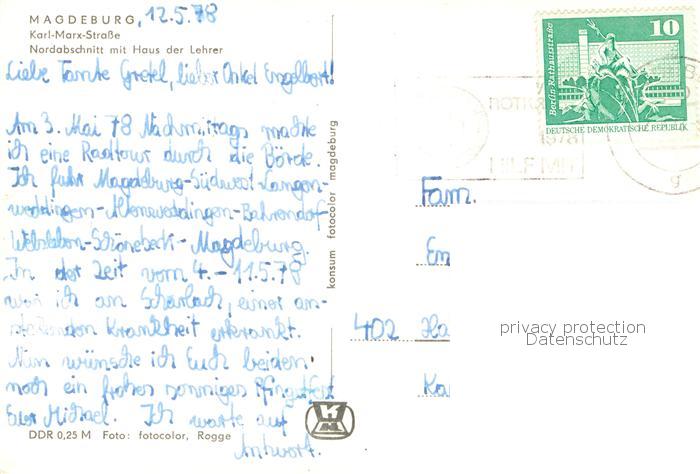 MAGDEBURG, 12.5.78
Karl-Marx-Straße
Nordabschnitt mit Haus der Lehrer
Liebe Tante Gretel, lieber Onkel Engelbert!
Am 3. Mai 78 Nachmittags machte
ich eine Radtour durch die Börde.
Ich fuhr Magdeburg-Südwest-Langen-
weddingen-Altenweddingen-Bahrendorf-
Welsleben-Schönebeck-Magdeburg.
In der Zeit vom 4.-11.5.78
war ich an Scharlach, einer an-
steckenden Krankheit erkrankt.
Nun wünsche ich Euch beiden
noch ein frohes sonniges Pfingstfest
Euer Michael. Ich warte auf
Antwort.
DDR 0,25 M Foto: fotocolor, Rogge
konsum fotocolor magdeburg
10
Berlin-Rathausstraße
DEUTSCHE DEMOKRATISCHE REPUBLIK
1978
HILF MIT
g
Fam.
Em
402 Ha
Ka
privacy protection
Datenschutz